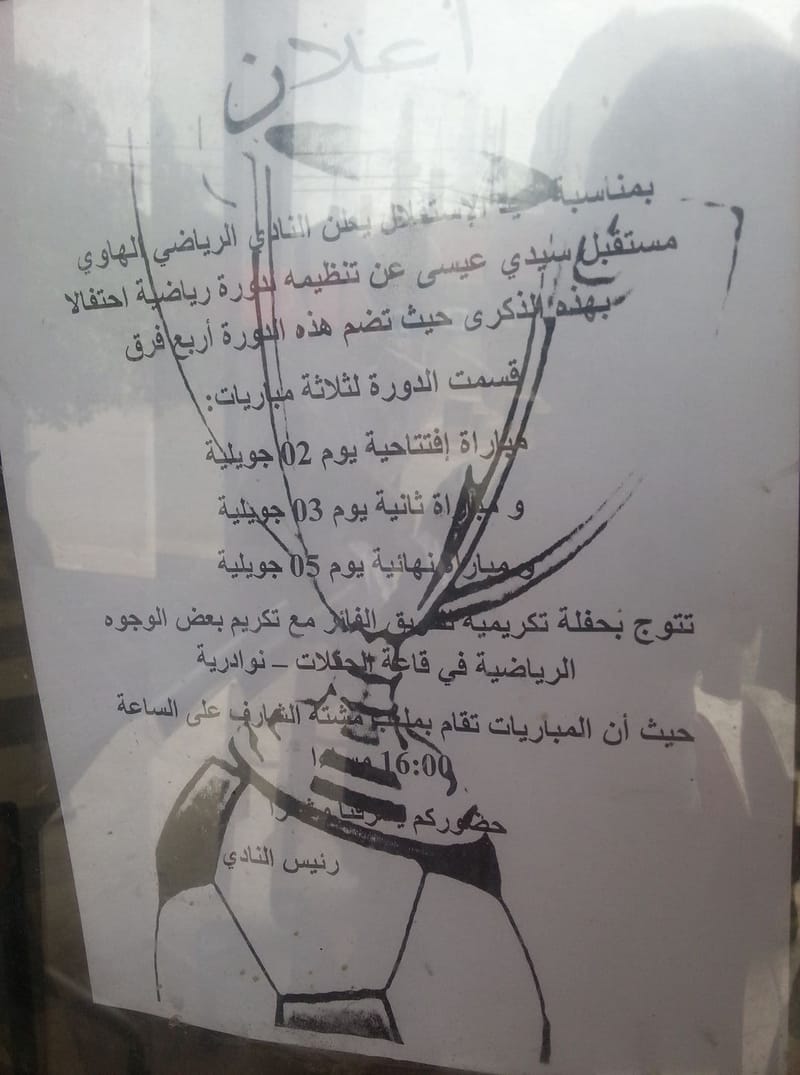 أعلان
بمناسبة عيد الإستقلال يعلن النادي الرياضي الهاوي
مستقبل سيدي عيسى عن تنظيمه لدورة رياضية احتفالا
بهذه الذكرى حيث تضم هذه الدورة أربع فرق
قسمت الدورة لثلاثة مباريات:
مباراة إفتتاحية يوم 02 جويلية
و مباراة ثانية يوم 03 جويلية
و مباراة نهائية يوم 05 جويلية
تتوج بحفلة تكريمية للفريق الفائز مع تكريم بعض الوجوه
الرياضية في قاعة الحفلات – نوادرية
حيث أن المباريات تقام بملعب مشتة الشارف على الساعة
16:00 مساءا
حضوركم يشرفنا وشكرا
رئيس النادي